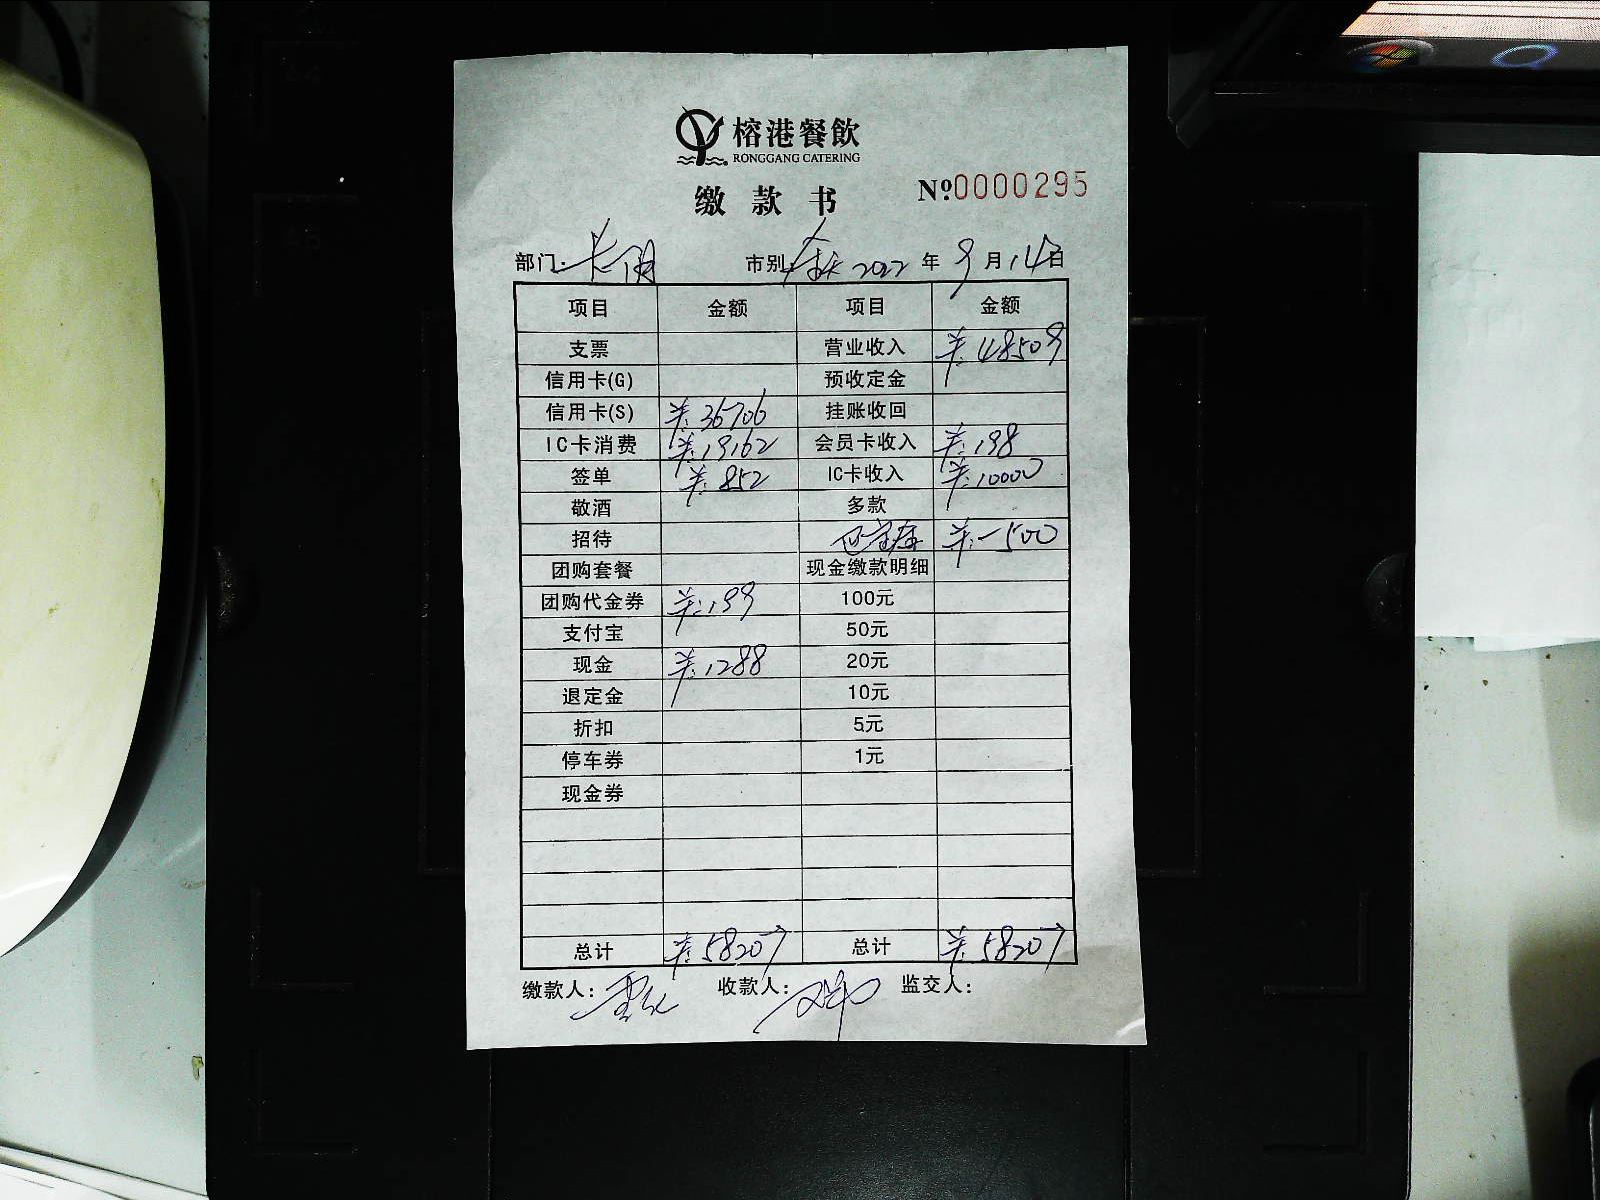 榕港餐飲
RONGGANG CATERING
缴款书 №0000295
部门: 市别: 2022 年 9 月 14 日
项目 金额 项目 金额
支票 营业收入 ¥:48509
信用卡(G) 预收定金
信用卡(S) ¥:36706 挂账收回
IC卡消费 ¥:19162 会员卡收入 ¥:198
签单 ¥:852 IC卡收入 ¥:10000
敬酒 多款
招待 ¥:-500
团购套餐 现金缴款明细
团购代金券 ¥:199 100元
支付宝 50元
现金 ¥:1288 20元
退定金 10元
折扣 5元
停车券 1元
现金券
总计 ¥:58207 总计 ¥:58207
缴款人: 收款人: 监交人: